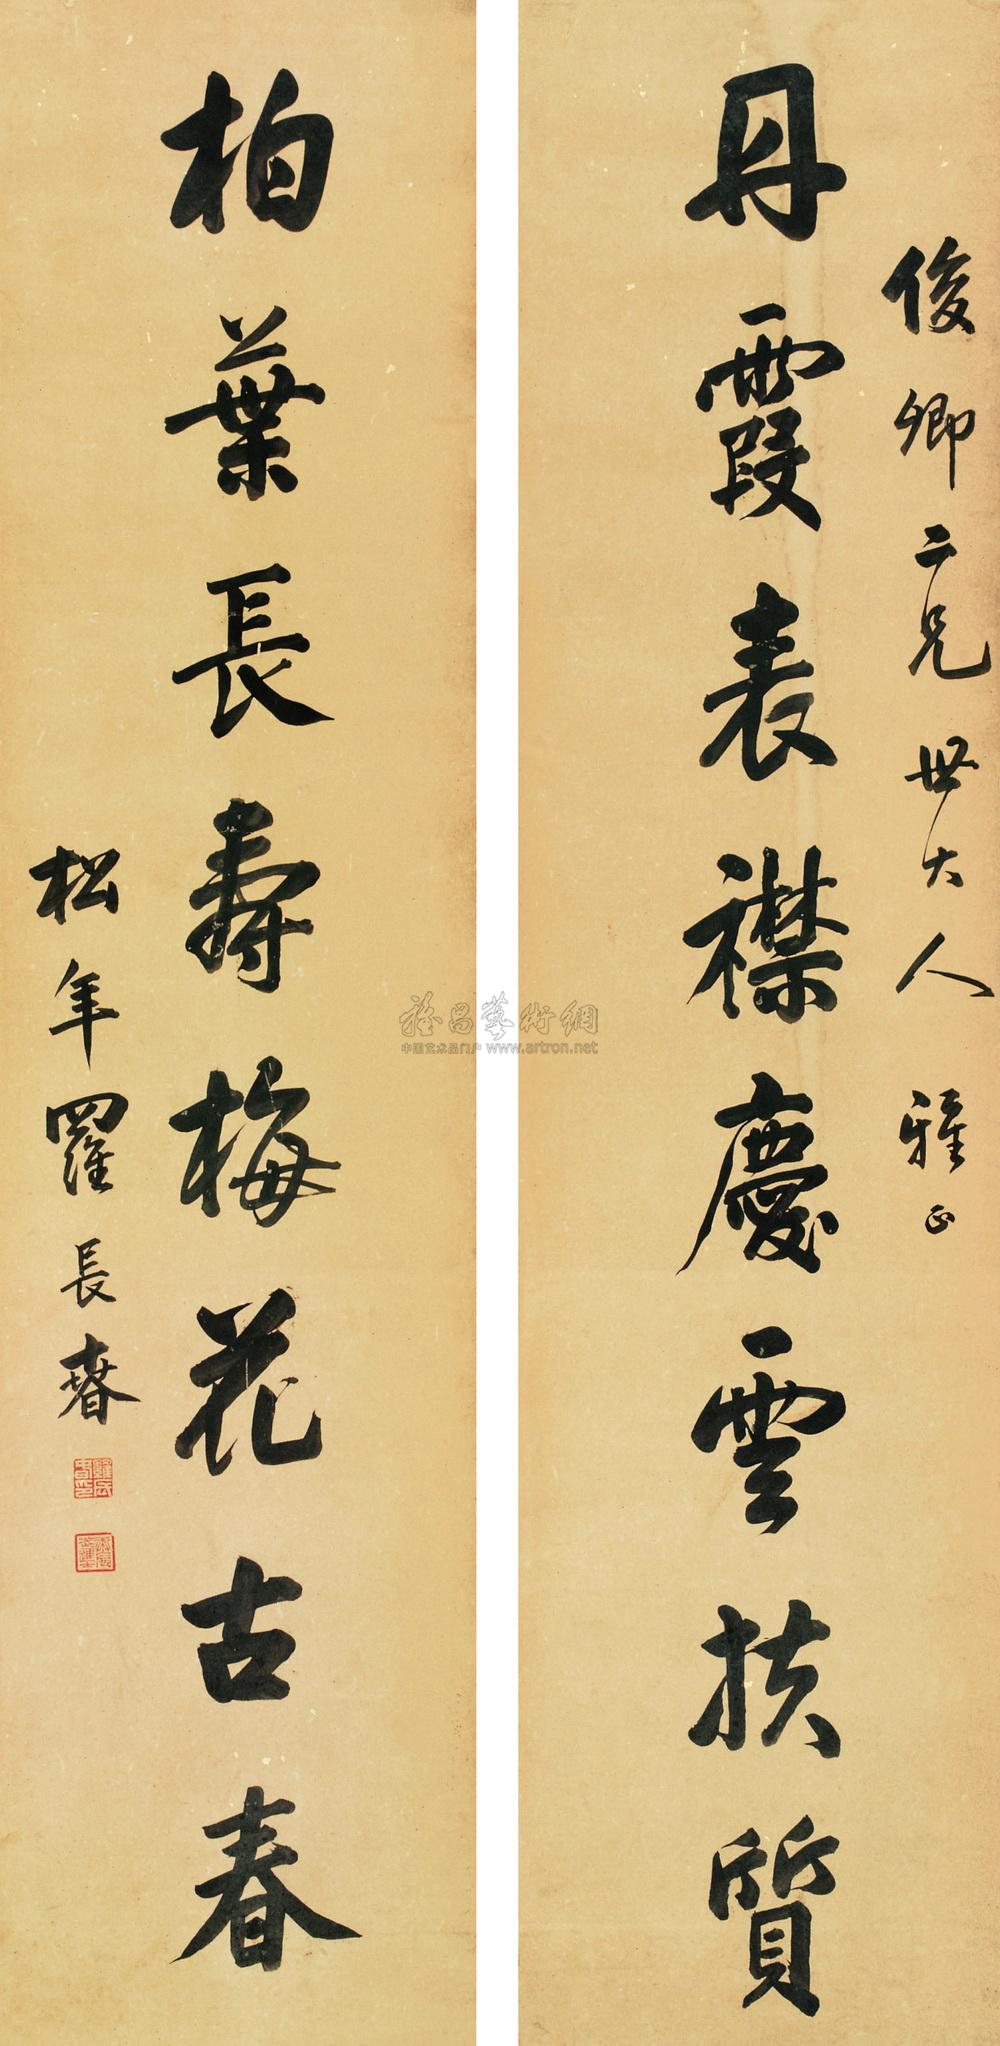 俊卿二兄世大人 雅正
丹霞表襟慶雲扶質
柏葉長壽梅花古春
松年羅長春
雅昌藝術網
中国艺术品门户 www.artron.net